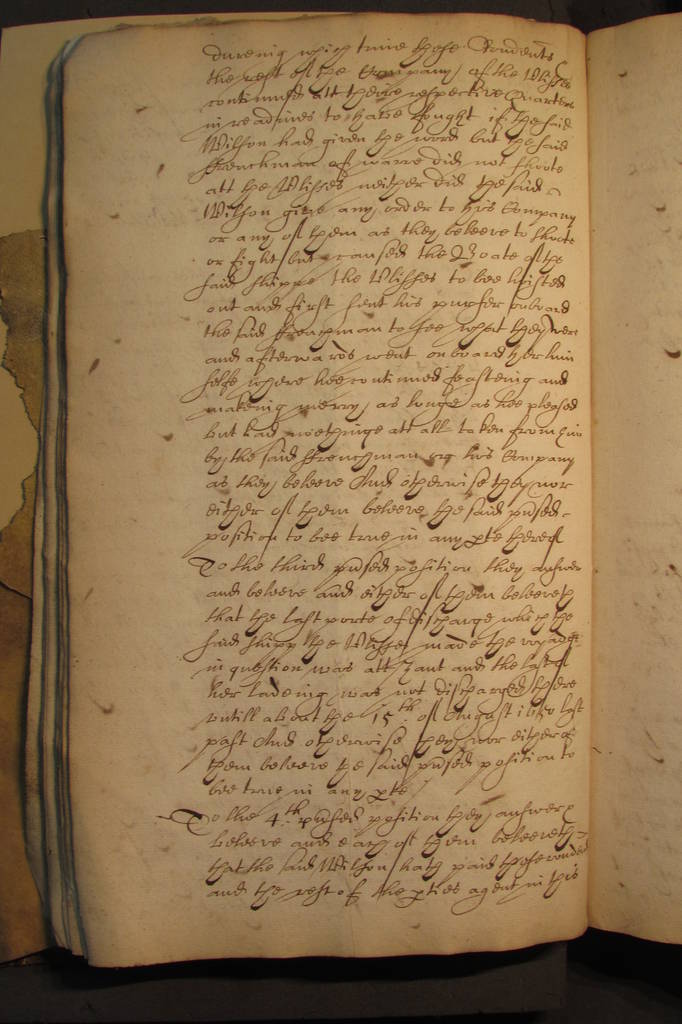 dureing which time these Rondents
the rest of the Company of the Ulisses
continued att theire respective Quarters
in readines to have fought if the said
Wilson had given the word but the said
ffrenchman of warre did not shoote
att the Ulisses neither did the said
Wilson give any order to his Company
or any of them as they beleeve to shoote
or fight but caused the Boate of the
said shippe the Ulisses to bee hoisted
out and first sent his purser onboard
the said ffrenchman to see what they were
and afterwards went onboard her him
selfe where hee continued feasteing and
makeing merry as longe as hee pleased
but had noethinge att all taken from him
by the said ffrenchman or his Company
as they beleeve And otherwise they nor
either of them beleeve the said pnsed
position to bee true in any pte thereof
To the third pnsed position they answer
and beleeve and either of them beleeveth
that the last porte of discharge which the
said shipp the Ulisses made the voyage
in question was att Zant and the last of
her ladeing was not discharged there
untill about the 15th. of August 1650 last
past And otherwise they nor either of
them beleeve the said pnsed position to
bee true in any pte
To the 4th. pnsed position they answer
beleeve and each of them beleeveth
that the said Wilson hath paid these Rondents
and the rest of the pties agent in this